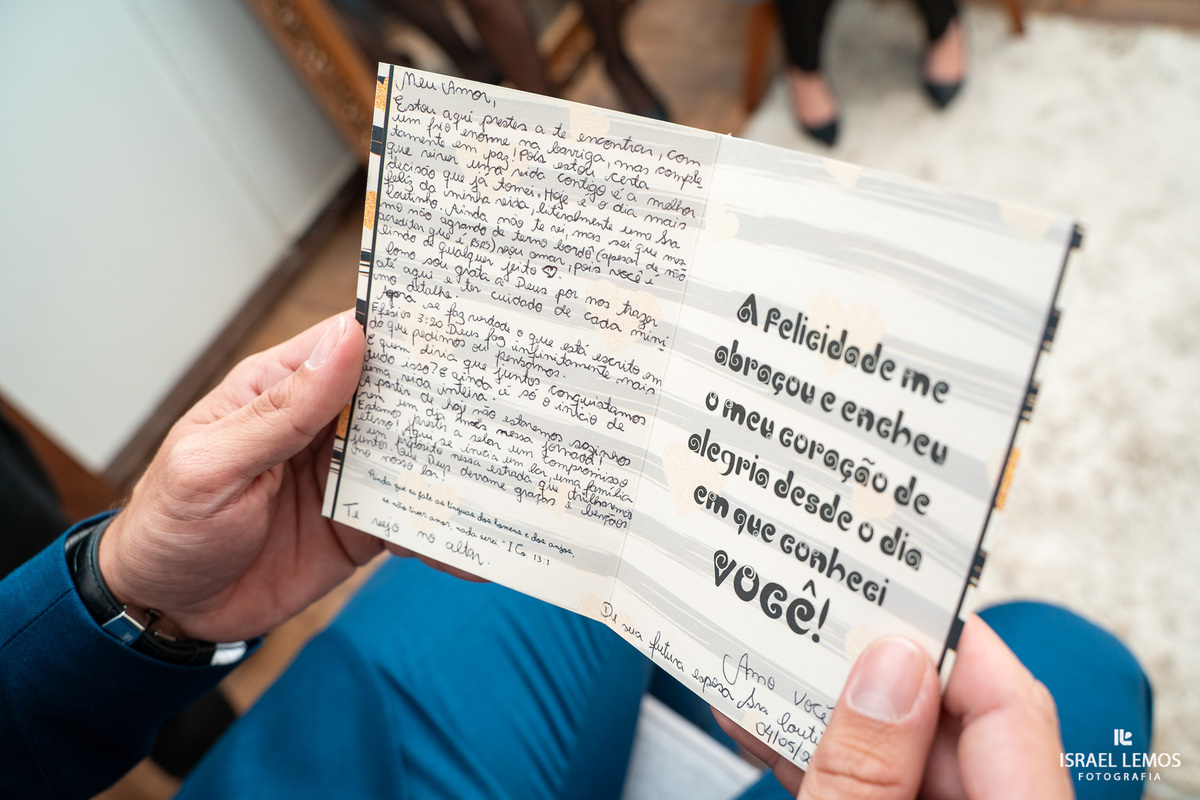 Meu Amor,
Estou aqui prestes a te encontrar, com
um frio enorme na barriga, mas comple
tamente em paz, pois estou certa
que viver uma vida contigo é a melhor
decisão que já tomei. Hoje é o dia mais
feliz da minha vida, literalmente uma Sra
Coutinho. Ainda não te vi, mas sei que mes
mo não agrando de terno bordô (apesar de não
acreditar que é azul) vou amar, pois você é
lindo de qualquer jeito
Como sou grata a Deus por nos trazer
até aqui e ter cuidado de cada míni
mo detalhe.
Agora se faz verdade o que está escrito em
Efésios 3:20 Deus faz infinitamente mais
do que pedimos ou pensamos.
E quem diria que juntos conquistamos
tudo isso? E ainda é só o início de
uma vida inteira.
A partir de hoje não estaremos sozinhos
um dia mais nessa jornada!
Estamos prestes a selar um compromisso
eterno! Aqui se inicia um lar, uma família
e um propósito nessa estrada que trilharemos
juntos. Que Deus derrame graças e bençãos
no nosso lar!
"Ainda que eu fale as línguas dos homens e dos anjos,
se não tiver amor, nada serei." I Co. 13:1
Te vejo no altar.
A felicidade me
abraçou e encheu
o meu coração de
alegria desde o dia
em que conheci
VOCÊ!
Amo você
De sua futura esposa Sra Couti
04/05/2
ISRAEL LEMOS
FOTOGRAFIA